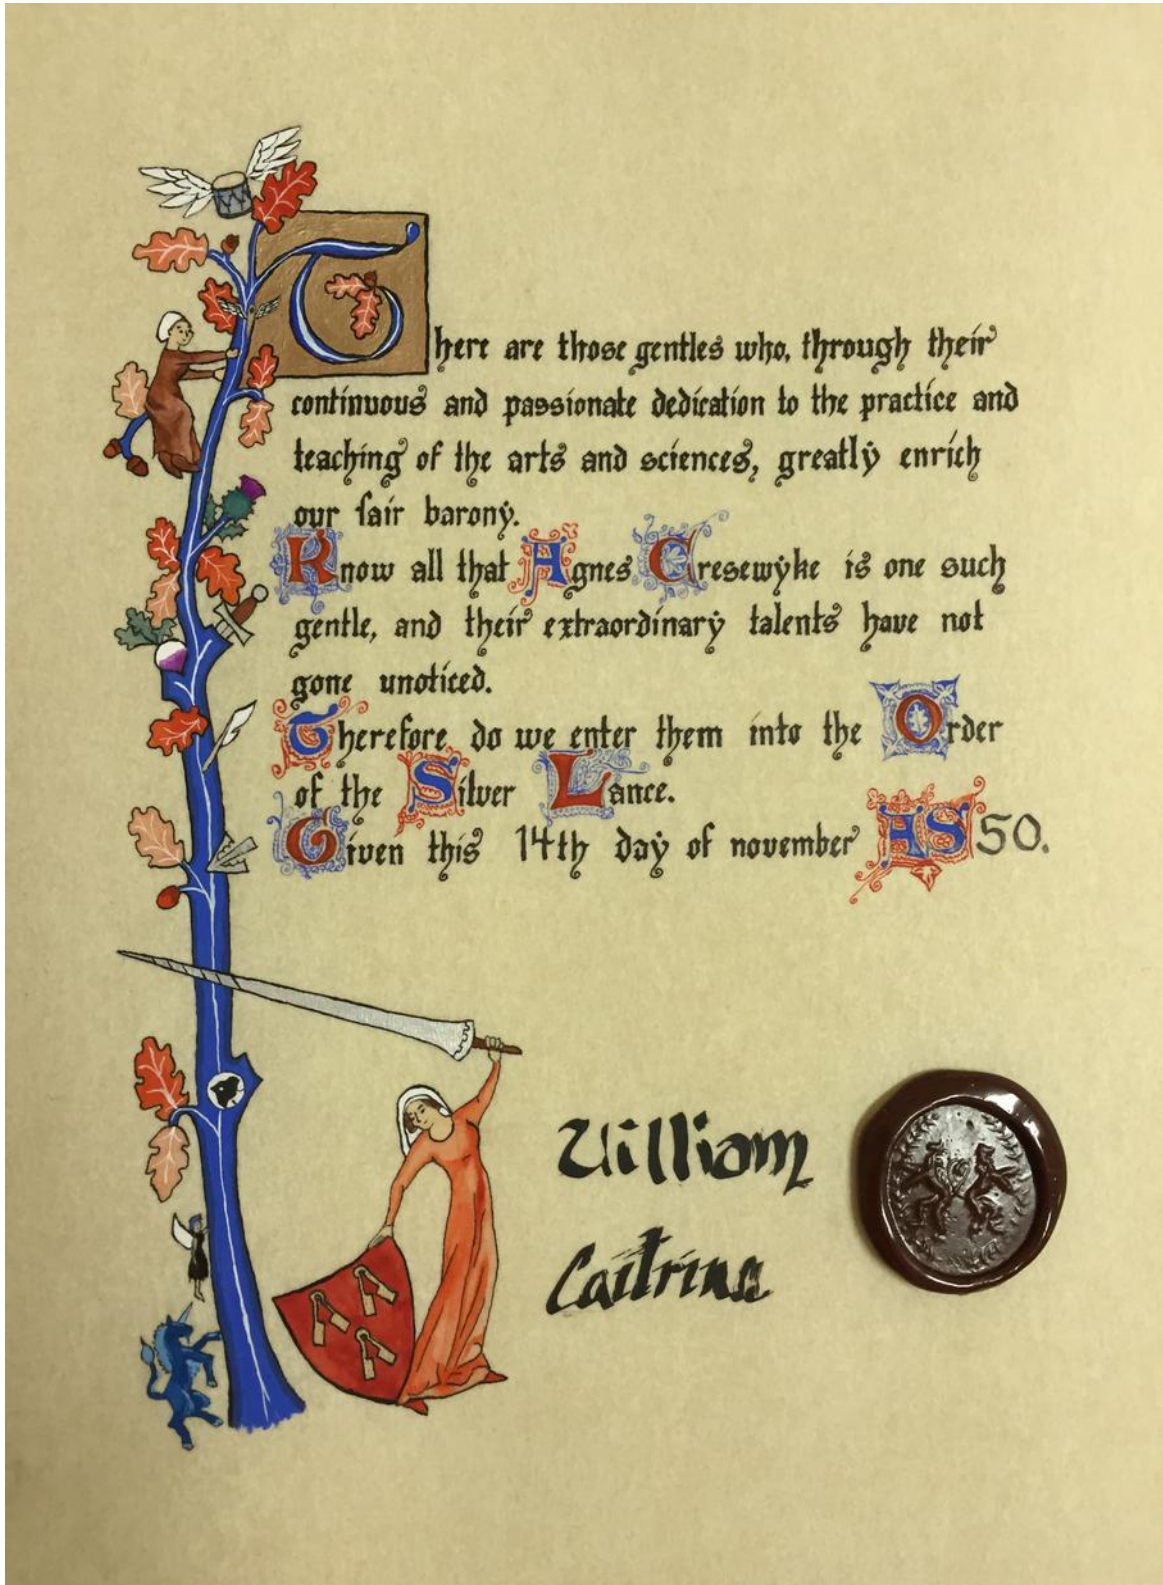 There are those gentles who, through their
continuous and passionate dedication to the practice and
teaching of the arts and sciences, greatly enrich
our fair barony.
Know all that Agnes Cresewyke is one such
gentle, and their extraordinary talents have not
gone unoticed.
Therefore do we enter them into the Order
of the Silver Lance.
Given this 14th day of november AS 50.
William
Caitrina